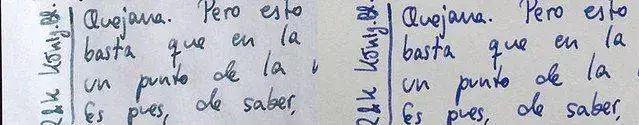 Quejana. Pero esto
basta que en la
un punto de la
Es pues, de saber,
König.
Quejana. Pero esto
basta que en la
un punto de la
Es pues, de saber,
König.